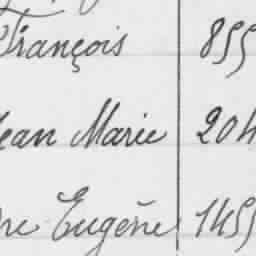 François 855
Jean Marie 204
Eugène 1455